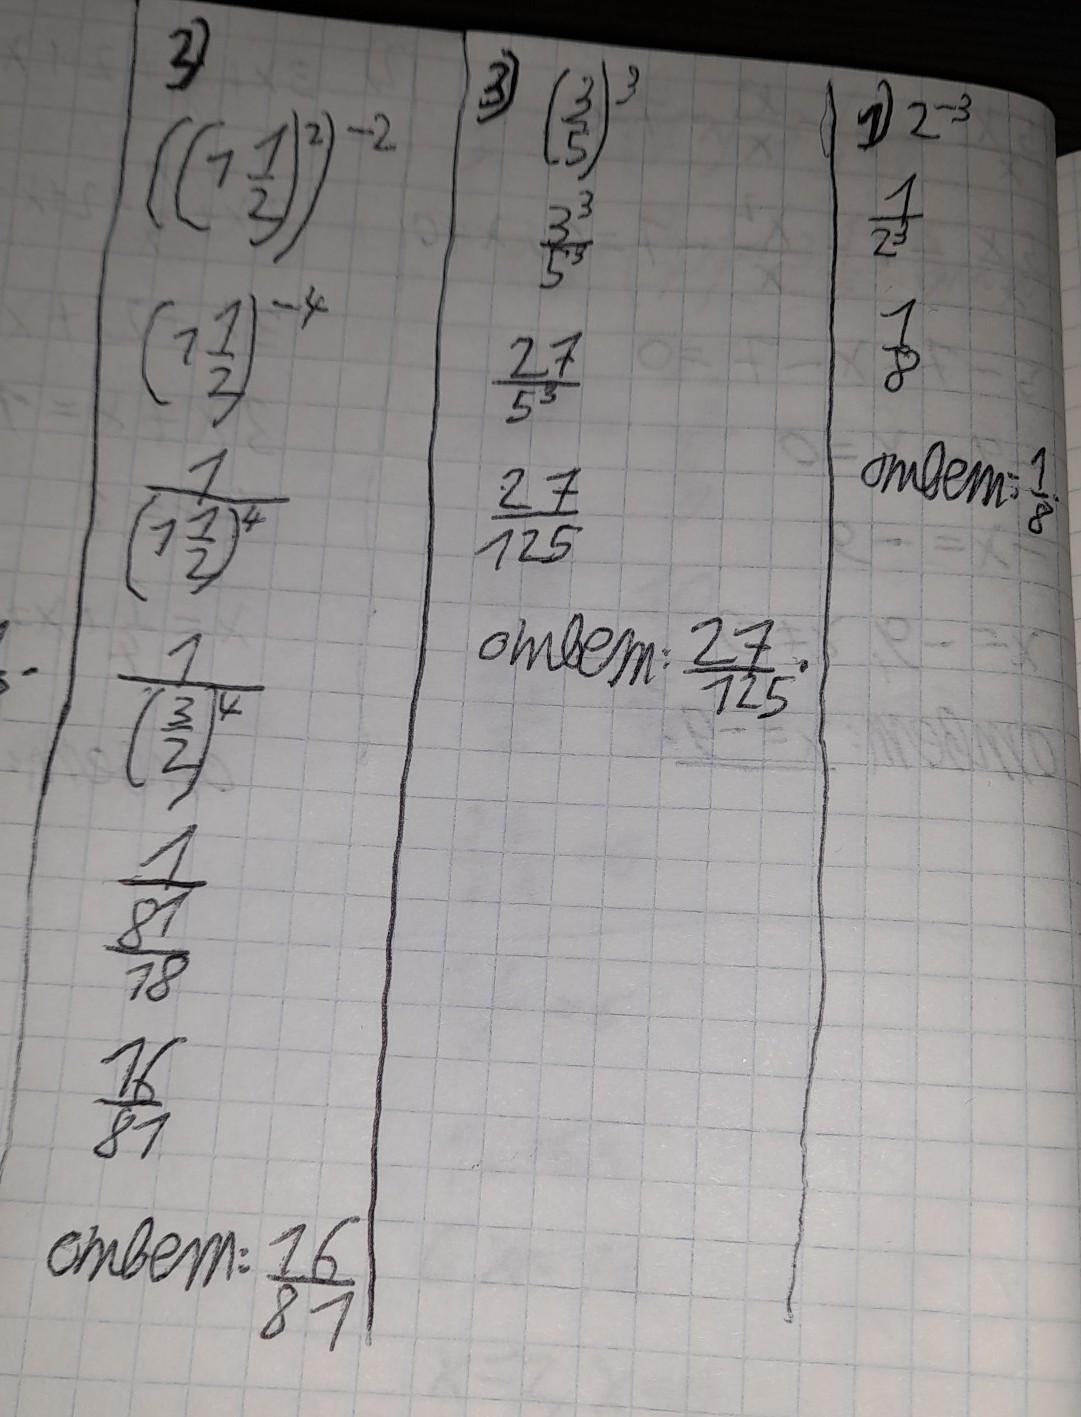 3)
((1 1/2)^2)^-2
(1 1/2)^-4
1/(1 1/2)^4
1/(3/2)^4
1/(81/18)
16/81
ответ: 16/81
3) (3/5)^3
3^3/5^3
27/5^3
27/125
ответ: 27/125.
1) 2^-3
1/2^3
1/8
ответ: 1/8.